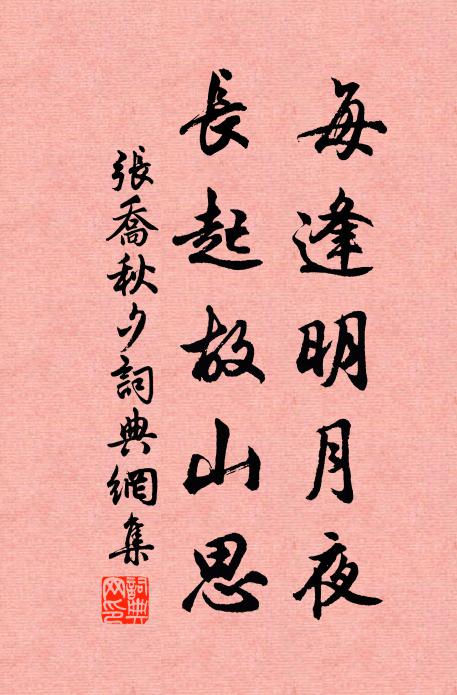 每逢明月夜
長起故山思
張喬秋夕詞典網集
詞典
网印